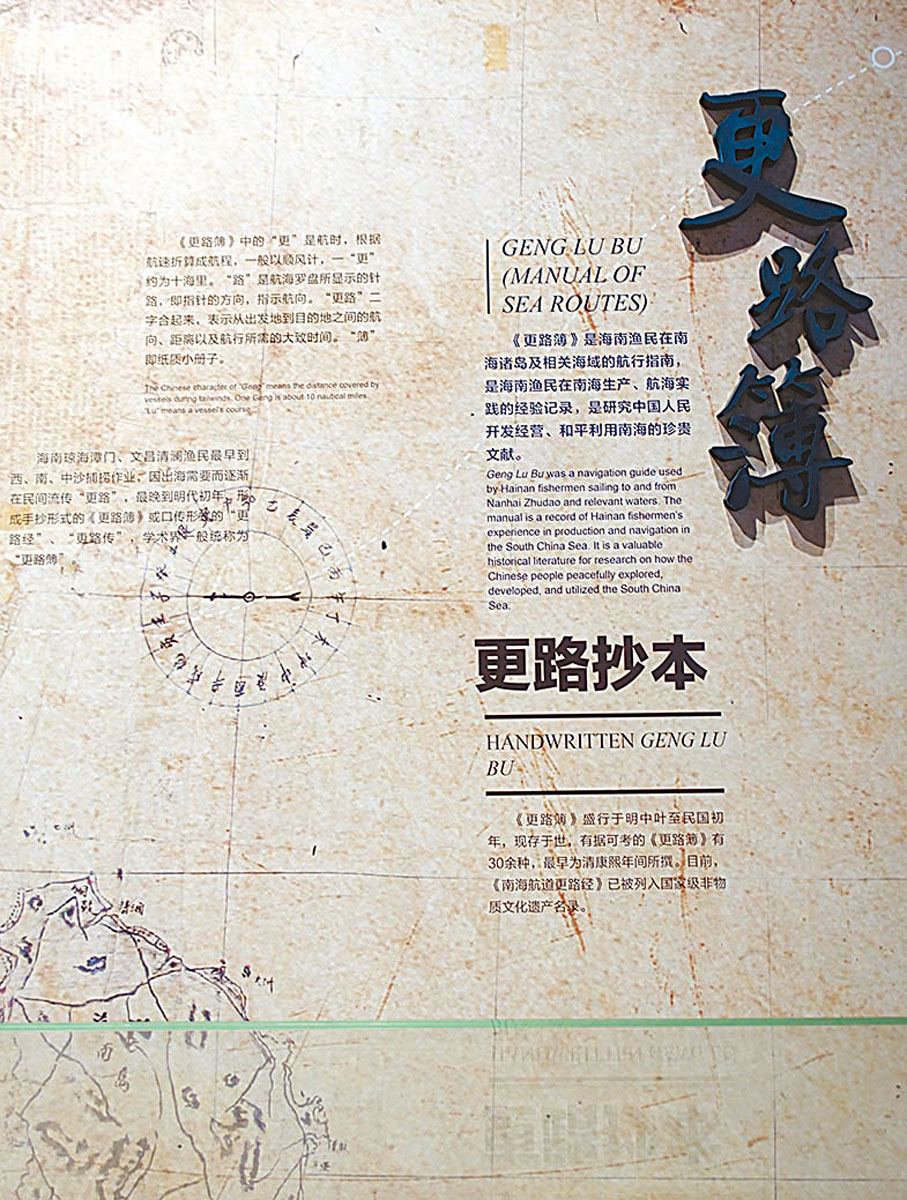 更路簿
GENG LU BU
(MANUAL OF
SEA ROUTES)
《更路簿》是海南渔民在南
海诸岛及相关海域的航行指南，
是海南渔民在南海生产、航海实
践的经验记录，是研究中国人民
开发经营、和平利用南海的珍贵
文献。
Geng Lu Bu was a navigation guide used
by Hainan fishermen sailing to and from
Nanhai Zhudao and relevant waters. The
manual is a record of Hainan fishermen's
experience in production and navigation in
the South China Sea. It is a valuable
historical literature for research on how the
Chinese people peacefully explored,
developed, and utilized the South China
Sea.
《更路簿》中的“更”是航时，根据
航速折算成航程，一般以顺风计，一“更”
约为十海里。“路”是航海罗盘所显示的针
路，即指针的方向，指示航向。“更路”二
字合起来，表示从出发地到目的地之间的航
向、距离以及航行所需的大致时间。“簿”
即纸质小册子。
The Chinese character of "Geng" means the distance covered by
vessels during tailwinds. One Geng is about 10 nautical miles.
"Lu" means a vessel's course.
海南琼海潭门、文昌清澜渔民最早到
西、南、中沙捕捞作业，因出海需要而逐渐
在民间流传“更路”，最晚到明代初年，形
成手抄形式的《更路簿》或口传形式的“更
路经”、“更路传”，学术界一般统称为
“更路簿”
更路抄本
HANDWRITTEN GENG LU
BU
《更路簿》盛行于明中叶至民国初
年，现存于世，有据可考的《更路簿》有
30余种，最早为清康熙年间所撰。目前，
《南海航道更路经》已被列入国家级非物
质文化遗产名录。
南
岛